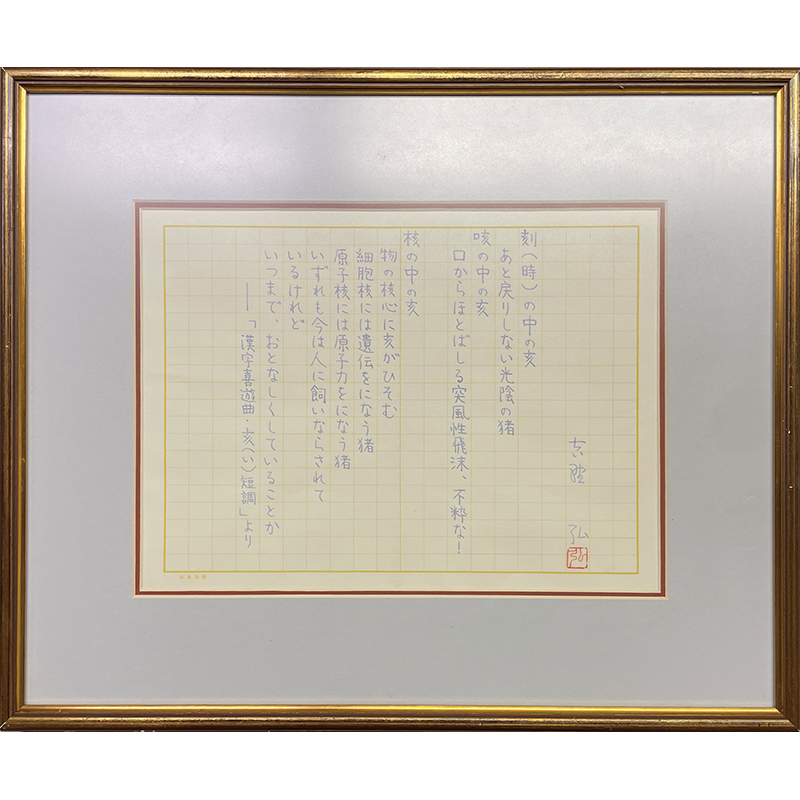 吉野 弘
弘
刻(時)の中の亥
あと戻りしない光陰の猪
咳の中の亥
口からほとばしる突風性飛沫、不粋な!
核の中の亥
物の核心に亥がひそむ
細胞核には遺伝をになう猪
原子核には原子力をになう猪
いずれも今は人に飼いならされて
いるけれど
いつまで、おとなしくしていることか
――「漢字喜遊曲・亥(い)短調」より